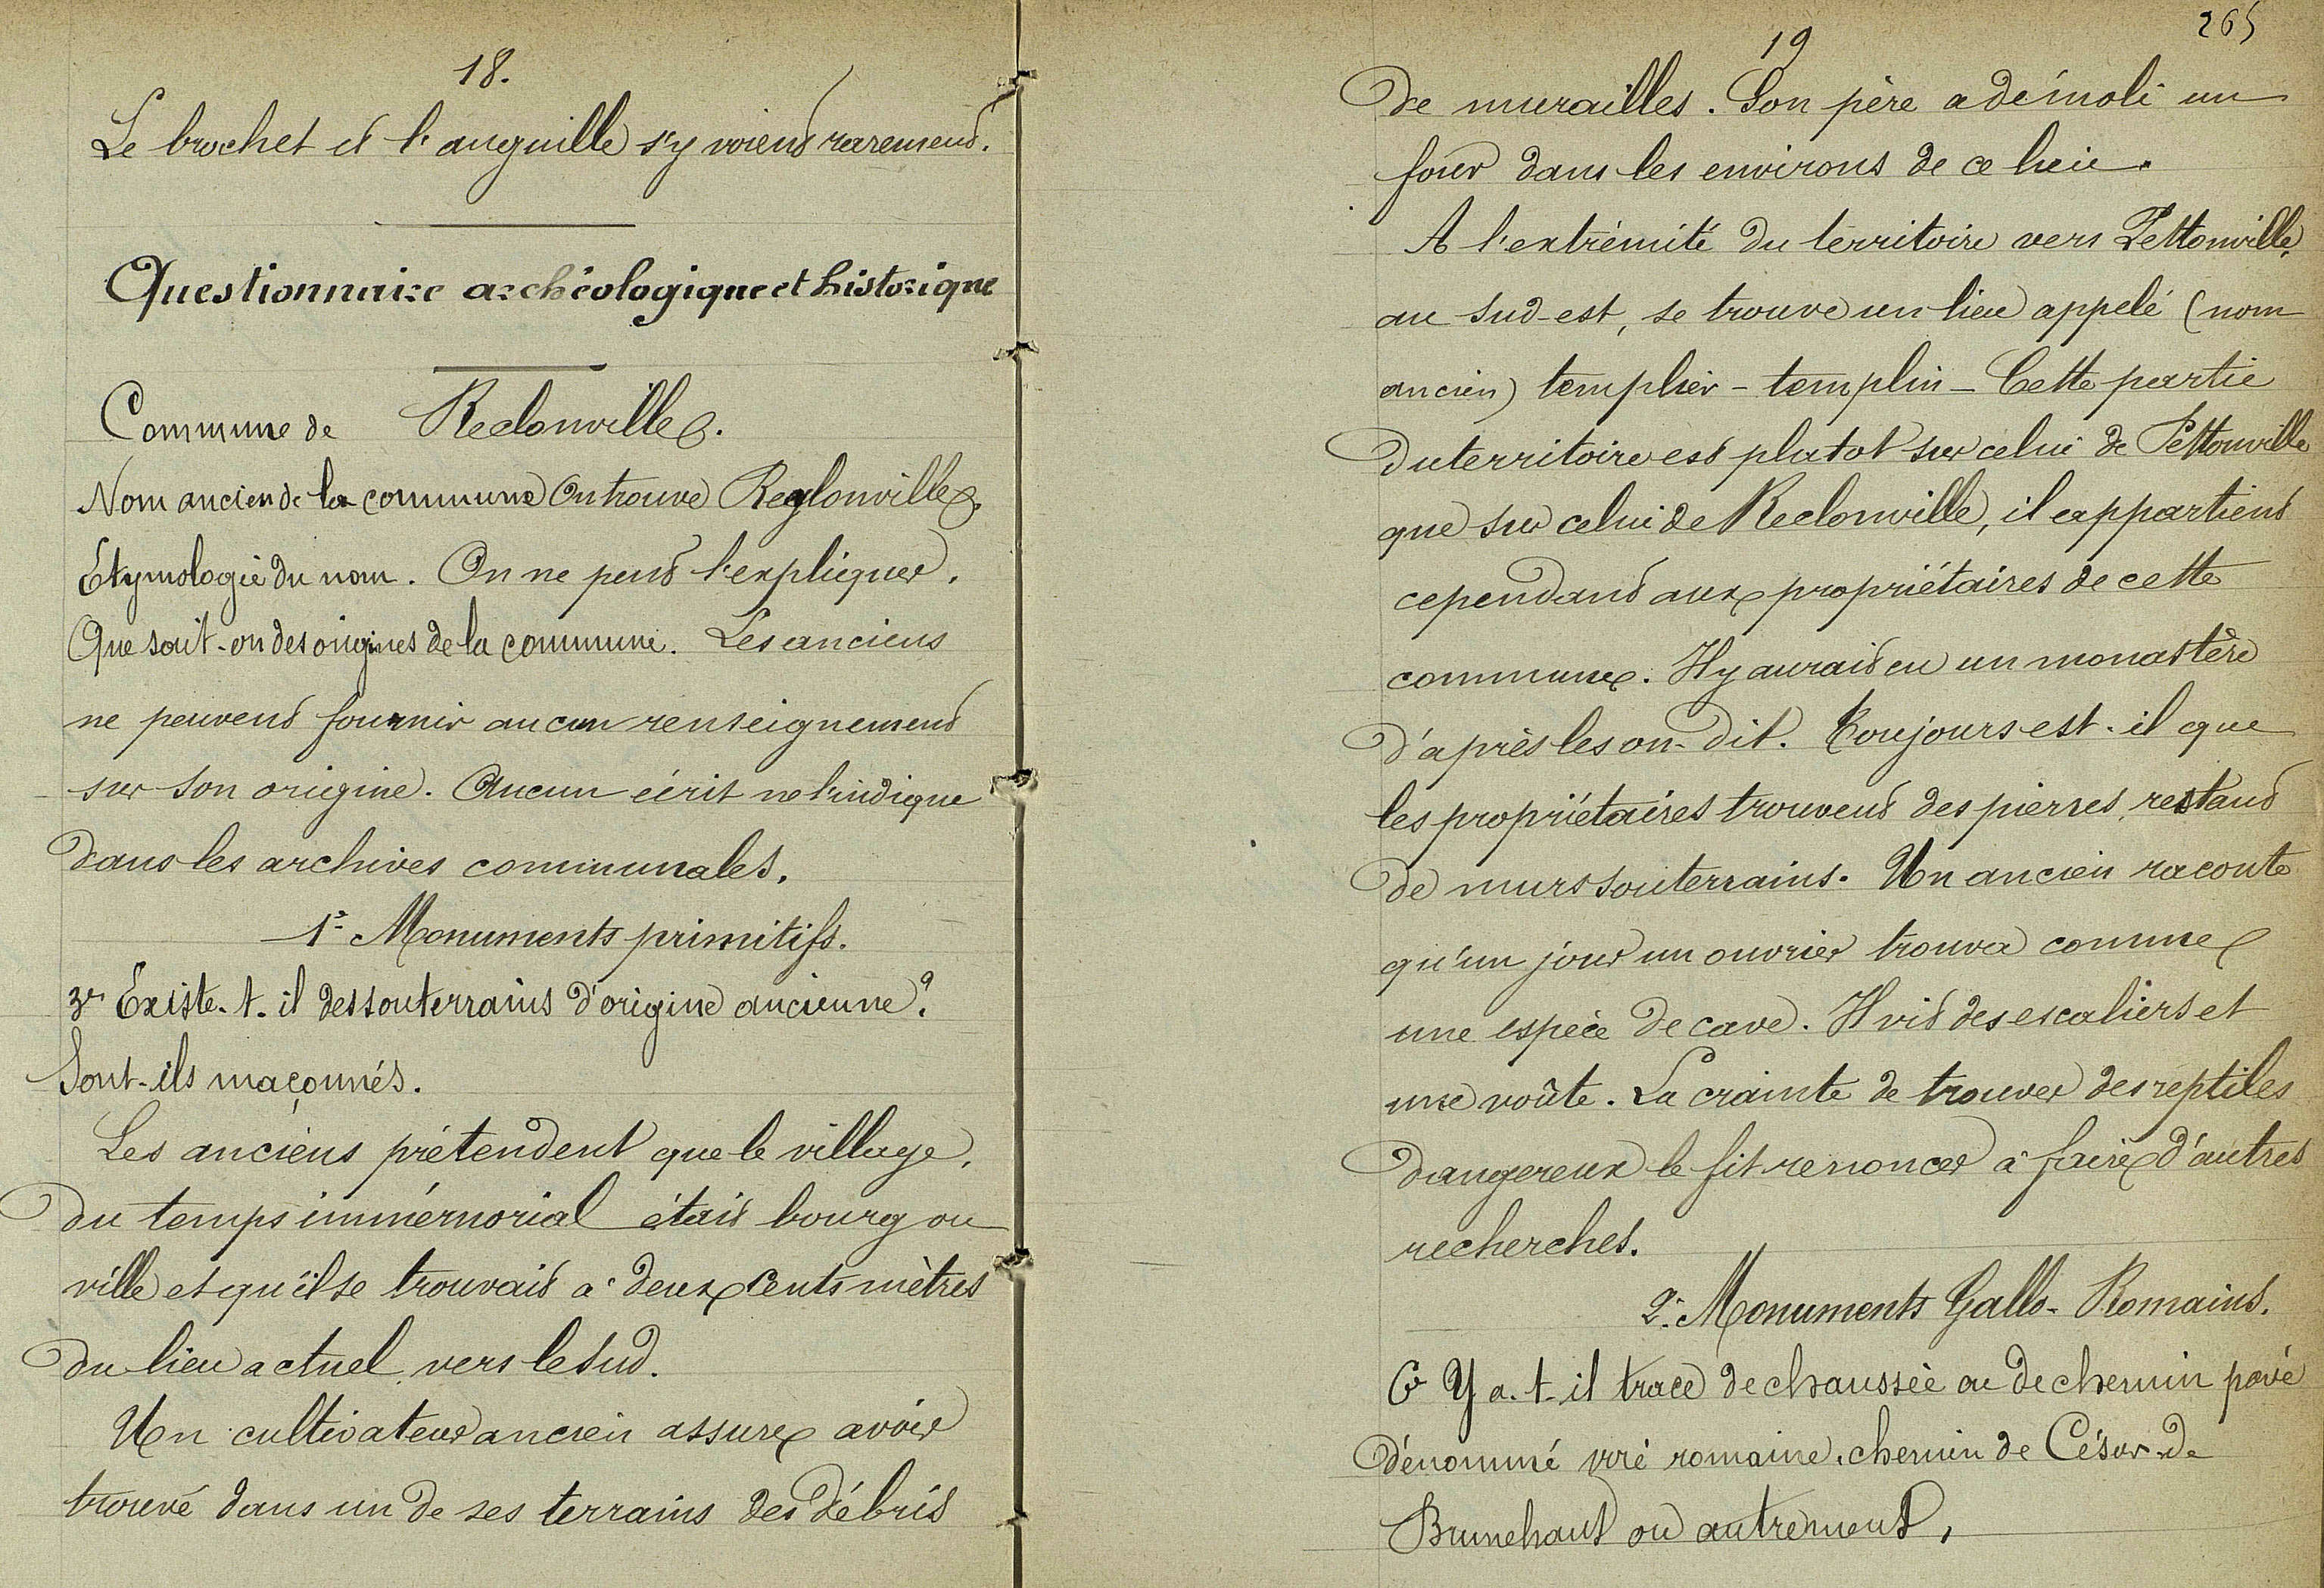 18.
Le brochet et l'anguille s'y voient rarement.
Questionnaire archéologique et historique
Commune de Reclonville.
Nom ancien de la commune On trouve Reglonville.
Etymologie du nom. On ne peut l'expliquer.
Que sait-on des origines de la commune. Les anciens
ne peuvent fournir aucun renseignement
sur son origine. Aucun écrit ne l'indique
dans les archives communales.
1º Monuments primitifs.
3º Existe-t-il des souterrains d'origine ancienne?
Sont-ils maçonnés.
Les anciens prétendent que le village,
du temps immémorial était bourg ou
ville et qu'il se trouvait à deux cents mètres
du lieu actuel vers le sud.
Un cultivateur ancien assure avoir
trouvé dans un de ses terrains des débris
265
19
de murailles. Son père a démoli un
four dans les environs de ce lieu.
A l'extrémité du territoire vers Pettonville,
au sud-est, se trouve un lieu appelé (nom
ancien) templier - templin - Cette partie
du territoire est plutot sur celui de Pettonville
que sur celui de Reclonville, il appartient
cependant aux propriétaires de cette
commune. Il y aurait eu un monastère
d'après les on-dit. Toujours est-il que
les propriétaires trouvent des pierres, restant
de murs souterrains. Un ancien raconte
qu'un jour un ouvrier trouva comme
une espèce de cave. Il vit des escaliers et
une voûte. La crainte de trouver des reptiles
dangereux le fit renoncer à faire d'autres
recherches.
2º Monuments Gallo-Romains.
6º Y a-t-il trace de chaussée ou de chemin pavé
dénommé voie romaine, chemin de César de
Brunehaut ou autrement,